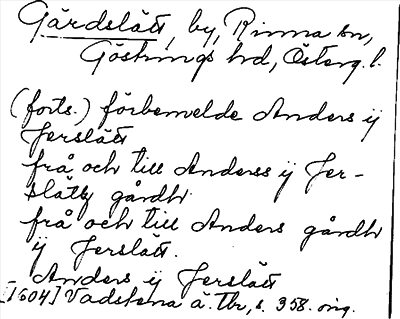 Gärdslätt, by, Rinna sn,
Göstrings hd, Österg. l.
(forts.) förbemelde Anders ij
Jerslätt
frå och till Anderss ij Jer-
slätz gårdh
frå och till Anders gårdh
ij Jerslätt.
Anders ij Jerslätt
[1604] Vadstena ä. Tbr, s. 358. orig.